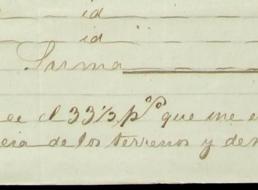 id
id
Suma
el 33⅓ p% que me
de los terrenos y de